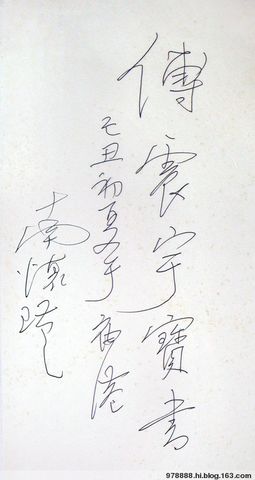 傅震宇寶書
己丑初夏于廟港
南懷瑾
978888.hi.blog.163.com